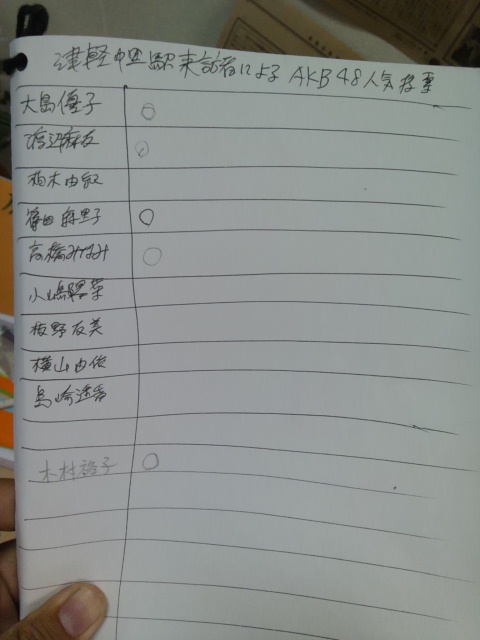 津軽中里駅来訪者による AKB48人気投票
大島優子 ○
渡辺麻友 ○
柏木由紀
篠田麻里子 ○
高橋みなみ ○
小嶋陽菜
板野友美
横山由依
島崎遥香
木村裕子 ○